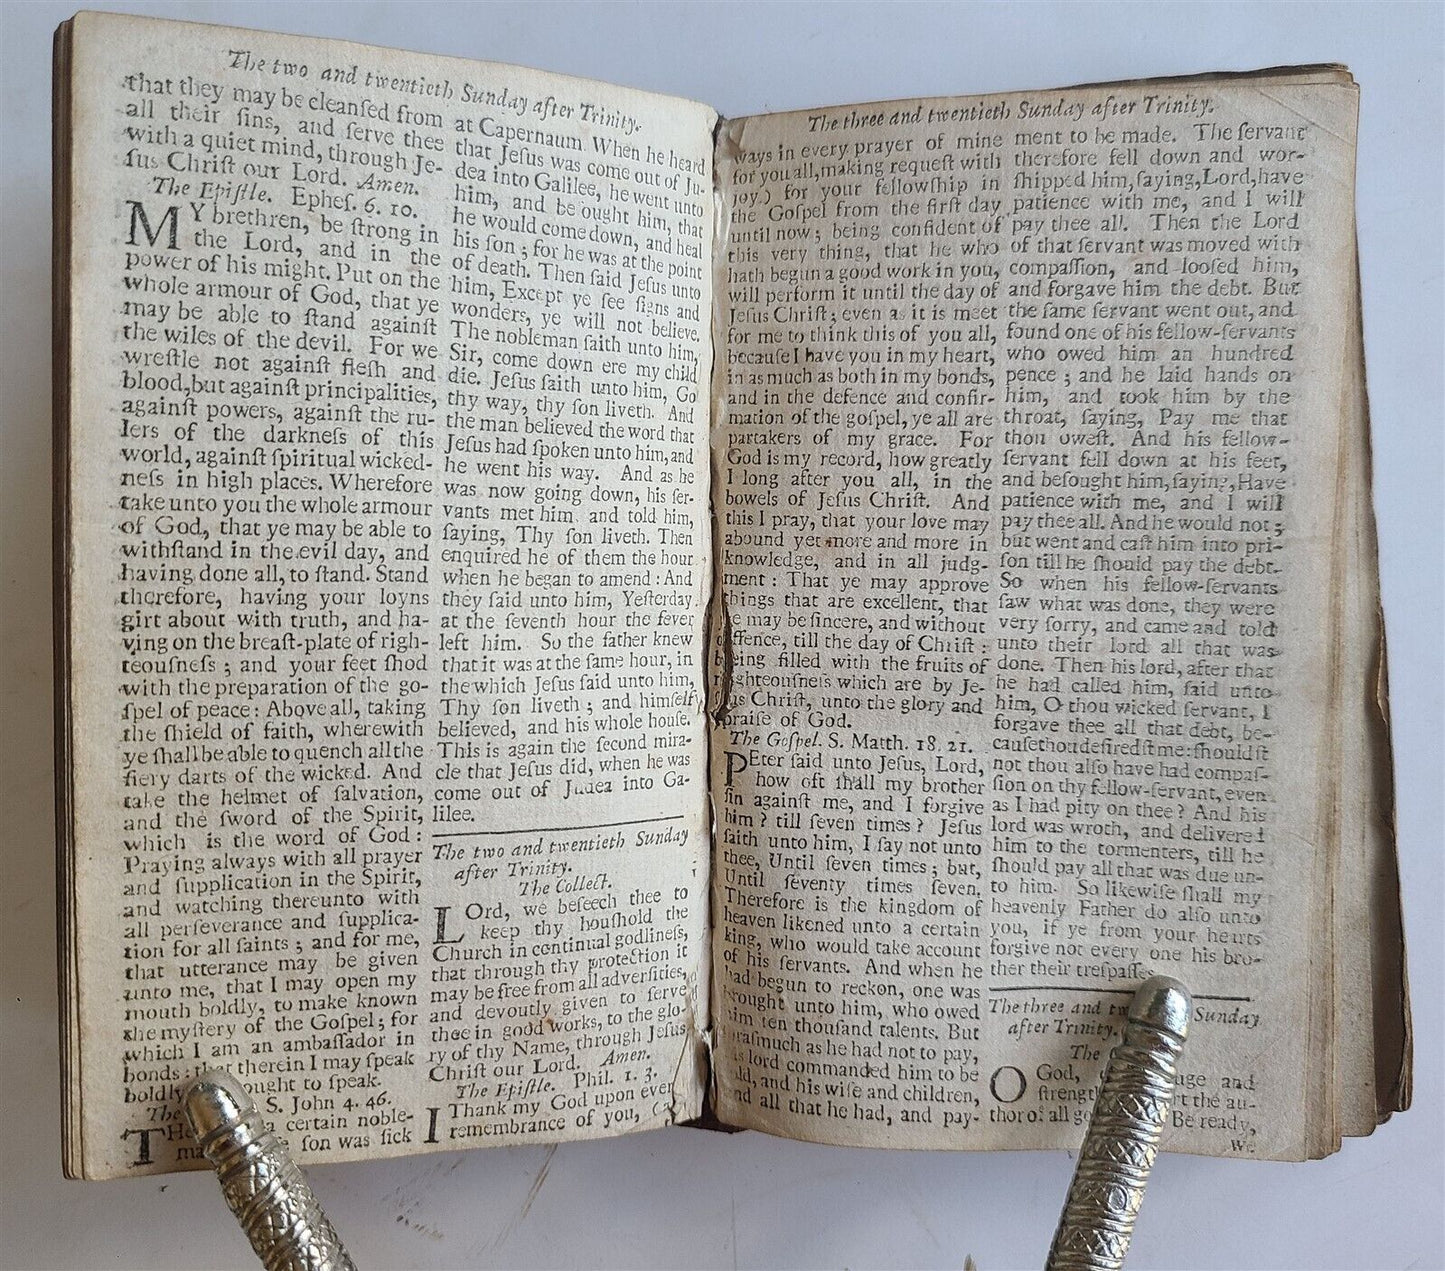 The two and twentieth Sunday after Trinity.
that they may be cleanſed from
all their ſins, and ſerve thee
with a quiet mind, through Je-
ſus Chriſt our Lord. Amen.
The Epiſtle. Epheſ. 6. 10.
MY brethren, be ſtrong in
the Lord, and in the
power of his might. Put on the
whole armour of God, that ye
may be able to ſtand againſt
the wiles of the devil. For we
wreſtle not againſt fleſh and
blood, but againſt principalities,
againſt powers, againſt the ru-
lers of the darkneſs of this
world, againſt ſpiritual wicked-
neſs in high places. Wherefore
take unto you the whole armour
of God, that ye may be able to
withſtand in the evil day, and
having done all, to ſtand. Stand
therefore, having your loyns
girt about with truth, and ha-
ving on the breaſt-plate of righ-
teouſneſs; and your feet ſhod
with the preparation of the go-
ſpel of peace: Above all, taking
the ſhield of faith, wherewith
ye ſhall be able to quench all the
fiery darts of the wicked. And
take the helmet of ſalvation,
and the ſword of the Spirit,
which is the word of God:
Praying always with all prayer
and ſupplication in the Spirit,
and watching thereunto with
all perſeverance and ſupplica-
tion for all ſaints; and for me,
that utterance may be given
unto me, that I may open my
mouth boldly, to make known
the myſtery of the Goſpel; for
which I am an ambaſſador in
bonds: that therein I may ſpeak
boldly ought to ſpeak.
The S. John 4. 46.
THe a certain noble-
ſon was ſick
at Capernaum. When he heard
that Jeſus was come out of Ju-
dea into Galilee, he went unto
him, and be ought him, that
he would come down, and heal
his ſon; for he was at the point
of death. Then ſaid Jeſus unto
him, Except ye ſee ſigns and
wonders, ye will not believe.
The nobleman ſaith unto him,
Sir, come down ere my child
die. Jeſus ſaith unto him, Go
thy way, thy ſon liveth. And
the man believed the word that
Jeſus had ſpoken unto him, and
he went his way. And as he
was now going down, his ſer-
vants met him and told him,
ſaying, Thy ſon liveth. Then
enquired he of them the hour
when he began to amend: And
they ſaid unto him, Yeſterday
at the ſeventh hour the fever
left him. So the father knew
that it was at the ſame hour, in
the which Jeſus ſaid unto him,
Thy ſon liveth; and himſelf
believed, and his whole houſe.
This is again the ſecond mira-
cle that Jeſus did, when he was
come out of Judea into Ga-
lilee.
The two and twentieth Sunday
after Trinity.
The Collect.
LOrd, we beſeech thee to
keep thy houſhold the
Church in continual godlineſs,
that through thy protection it
may be free from all adverſities,
and devoutly given to ſerve
thee in good works, to the glo-
ry of thy Name, through Jeſus
Chriſt our Lord. Amen.
The Epiſtle. Phil. 1. 3.
I Thank my God upon every
remembrance of you,
The three and twentieth Sunday after Trinity.
ways in every prayer of mine
for you all, making requeſt with
joy) for your fellowſhip in
the Goſpel from the firſt day
until now; being confident of
this very thing, that he who
hath begun a good work in you,
will perform it until the day of
Jeſus Chriſt; even as it is meet
for me to think this of you all,
becauſe I have you in my heart,
in as much as both in my bonds,
and in the defence and confir-
mation of the goſpel, ye all are
partakers of my grace. For
God is my record, how greatly
I long after you all, in the
bowels of Jeſus Chriſt. And
this I pray, that your love may
abound yet more and more in
knowledge, and in all judg-
ment: That ye may approve
things that are excellent, that
ye may be ſincere, and without
offence, till the day of Chriſt:
being filled with the fruits of
righteouſneſs which are by Je-
ſus Chriſt, unto the glory and
praiſe of God.
The Goſpel. S. Matth. 18. 21.
PEter ſaid unto Jeſus, Lord,
how oft ſhall my brother
ſin againſt me, and I forgive
him? till ſeven times? Jeſus
ſaith unto him, I ſay not unto
thee, Until ſeven times; but,
Until ſeventy times ſeven,
Therefore is the kingdom of
heaven likened unto a certain
king, who would take account
of his ſervants. And when he
had begun to reckon, one was
brought unto him, who owed
him ten thouſand talents. But
raſmuch as he had not to pay,
his lord commanded him to be
ſold, and his wife and children,
and all that he had, and pay-
ment to be made. The ſervant
therefore fell down and wor-
ſhipped him, ſaying, Lord, have
patience with me, and I will
pay thee all. Then the Lord
of that ſervant was moved with
compaſſion, and looſed him,
and forgave him the debt. But
the ſame ſervant went out, and
found one of his fellow-ſervants
who owed him an hundred
pence; and he laid hands on
him, and took him by the
throat, ſaying, Pay me that
thou oweſt. And his fellow-
ſervant fell down at his feet,
and beſought him, ſaying, Have
patience with me, and I will
pay thee all. And he would not;
but went and caſt him into pri-
ſon till he ſhould pay the debt.
So when his fellow-ſervants
ſaw what was done, they were
very ſorry, and came and told
unto their lord all that was
done. Then his lord, after that
he had called him, ſaid unto
him, O thou wicked ſervant, I
forgave thee all that debt, be-
cauſe thou deſiredſt me: ſhouldſt
not thou alſo have had compaſ-
ſion on thy fellow-ſervant, even
as I had pity on thee? And his
lord was wroth, and delivered
him to the tormenters, till he
ſhould pay all that was due un-
to him. So likewiſe ſhall my
heavenly Father do alſo unto
you, if ye from your hearts
forgive not every one his bro-
ther their treſpaſſes.
The three and Sunday
after Trinity.
The
O God, and
ſtrength the au-
thor of all Be ready,
we